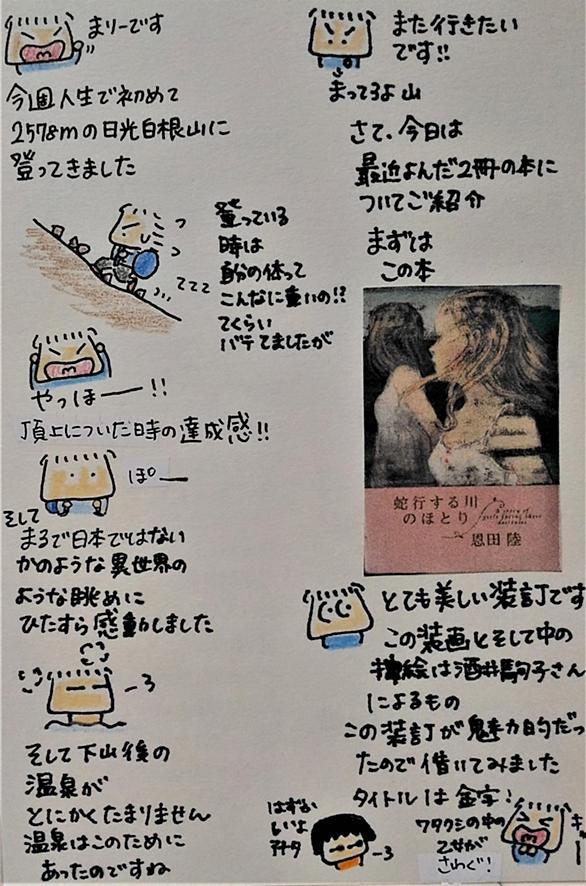 まりーです
今週人生で初めて
2578mの日光白根山に
登ってきました
登っている
時は
自分の体って
こんなに重いの!?
てくらい
バテてましたが
ててて
やっほー!!
頂上についた時の達成感!!
ぽー
そして
まるで日本ではない
かのような異世界の
ような眺めに
ひたすら感動しました
そして下山後の
温泉が
とにかくたまりません
温泉はこのために
あったのですね
また行きたい
です!!
まってろよ山
さて、今日は
最近よんだ2冊の本に
ついてご紹介
まずは
この本
蛇行する川
のほとり
恩田 陸
とても美しい装訂です
この装画とそして中の
挿絵は酒井駒子さん
によるもの
この装訂が魅力的だっ
たので借いてみました
タイトルは金字!
はずかい
いよ
アナタ
ワタクシの中の
乙女が
さわぐ!
キャー